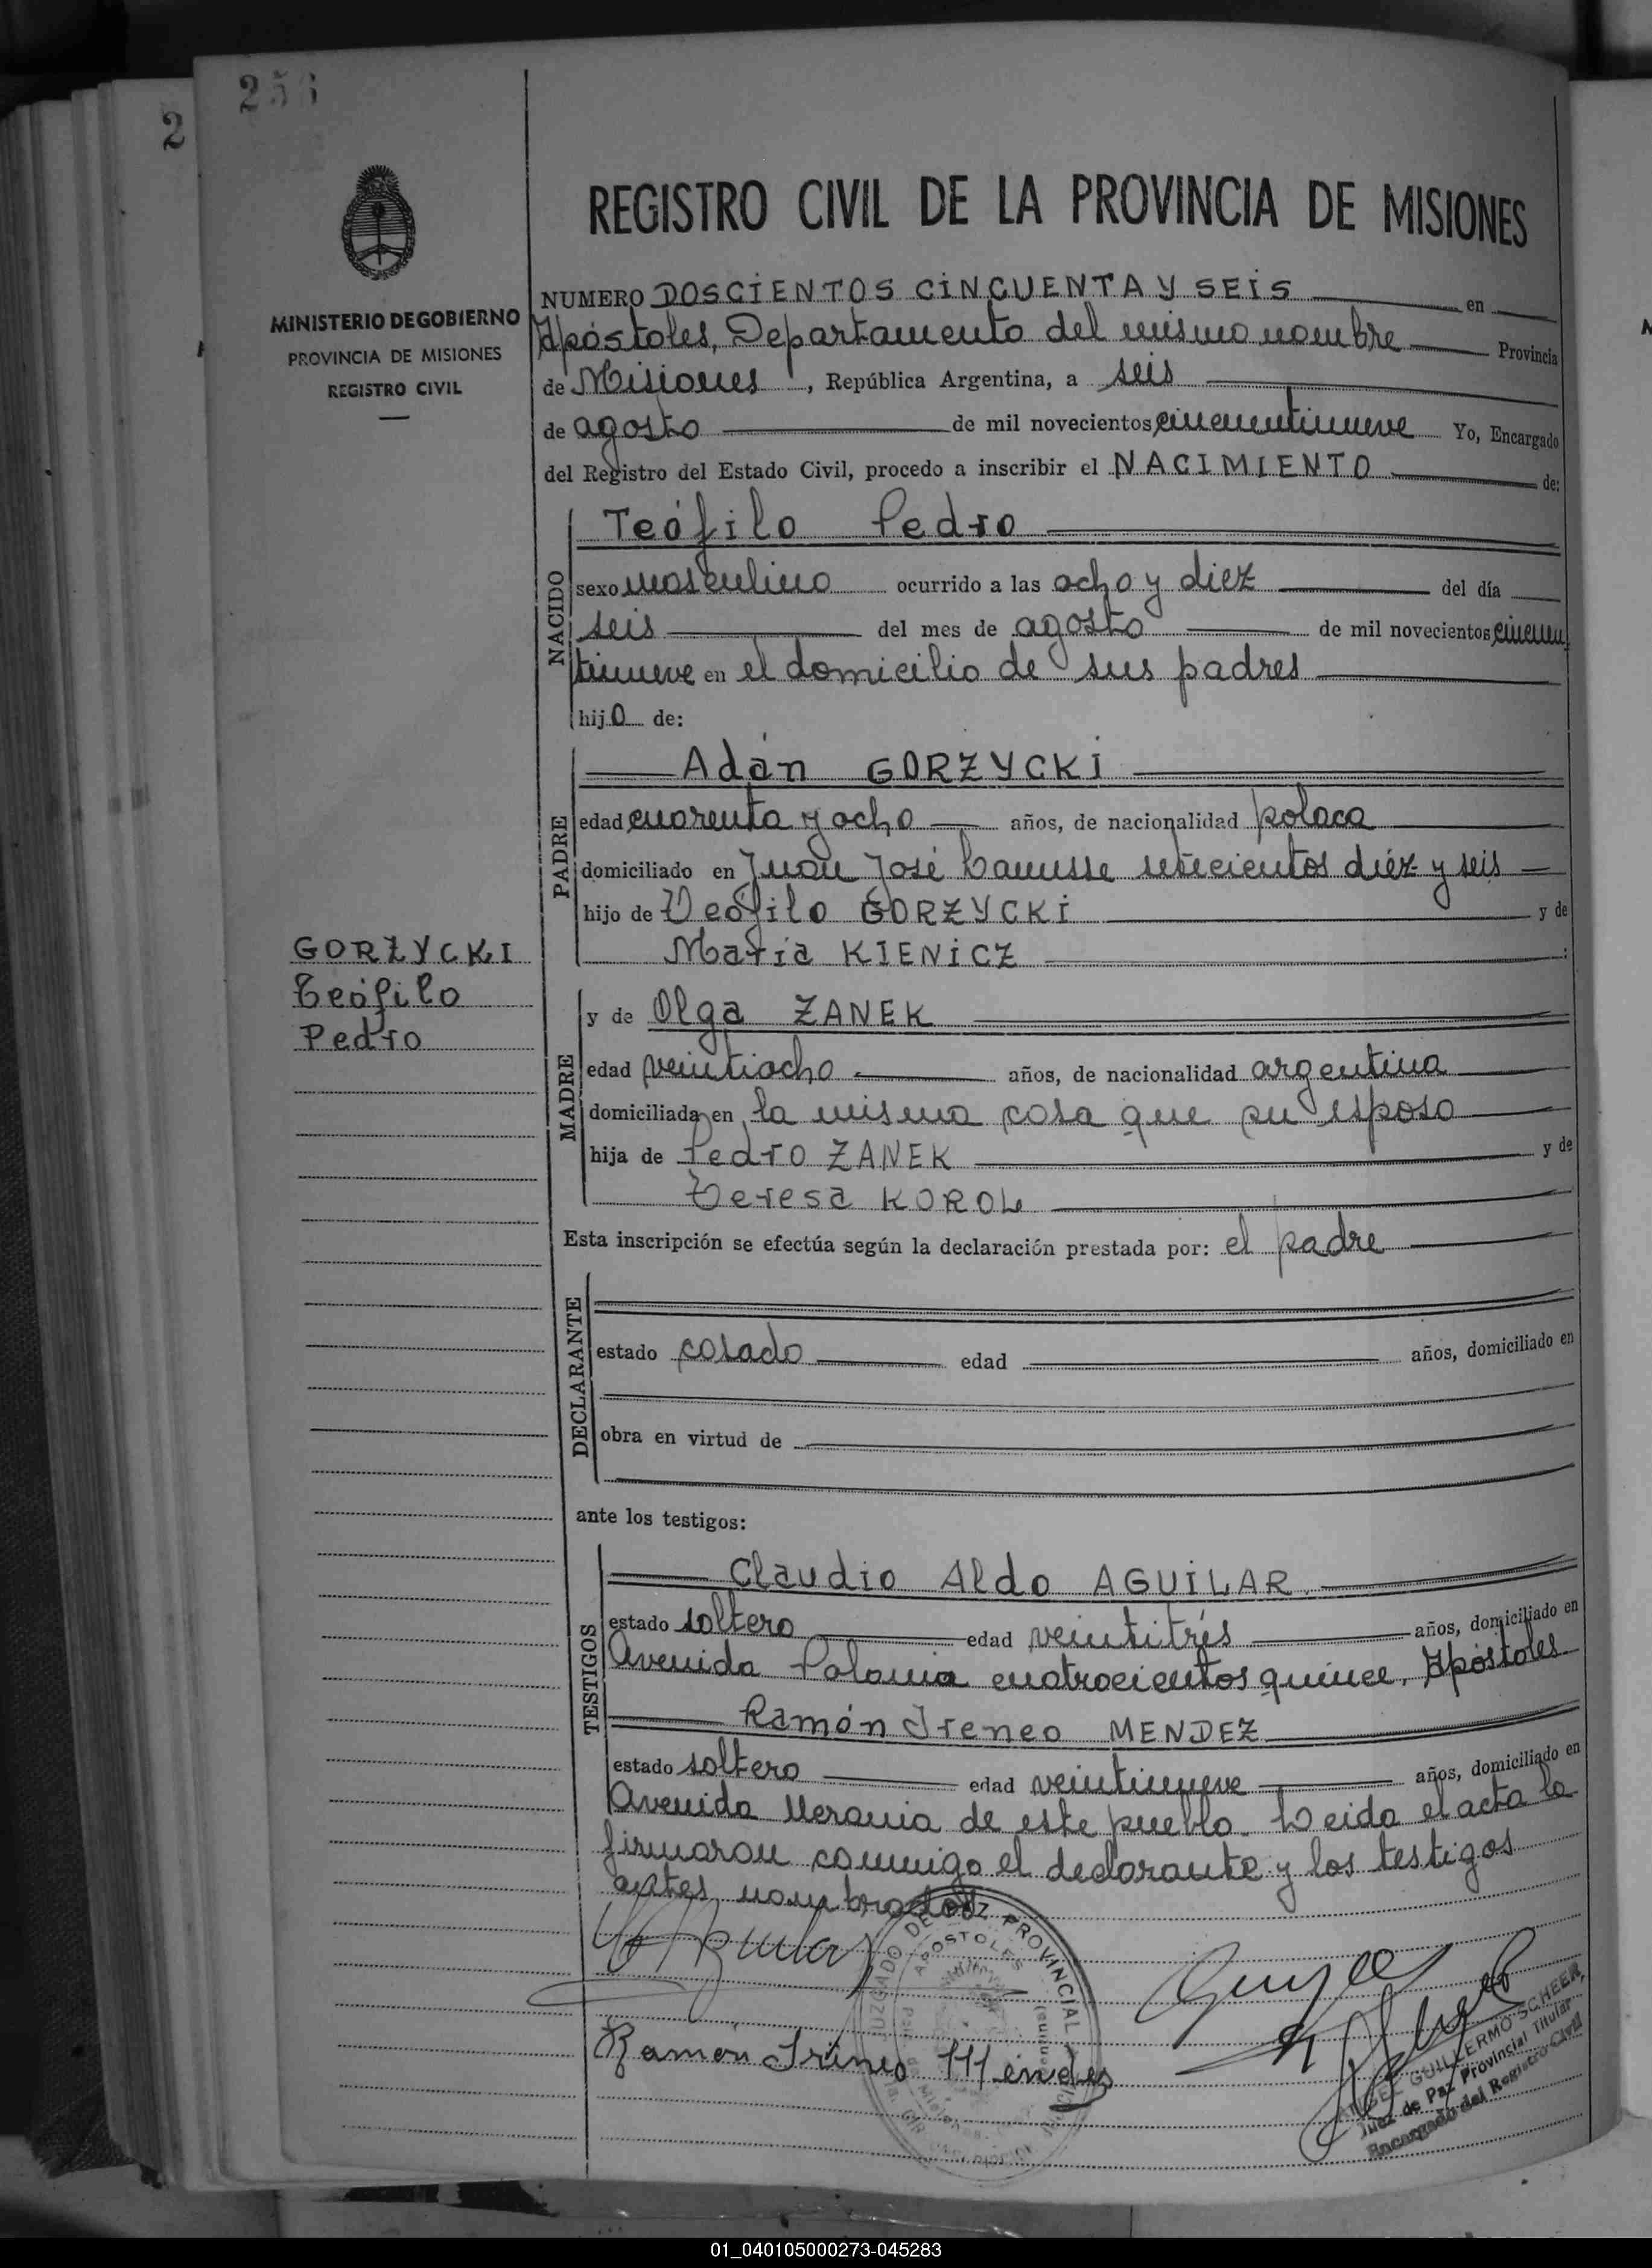 256
2
MINISTERIO DE GOBIERNO
PROVINCIA DE MISIONES
REGISTRO CIVIL
REGISTRO CIVIL DE LA PROVINCIA DE MISIONES
NUMERO DOSCIENTOS CINCUENTA Y SEIS en
Apóstoles, Departamento del mismo nombre Provincia
de Misiones, República Argentina, a seis
de agosto de mil novecientos cincuentinueve Yo, Encargado
del Registro del Estado Civil, procedo a inscribir el NACIMIENTO de:
NACIDO
Teófilo Pedro
sexo masculino ocurrido a las ocho y diez del día
seis del mes de agosto de mil novecientos cincuen
tinueve en el domicilio de sus padres
hijo de:
PADRE
Adán GORZYCKI
edad cuarenta y ocho años, de nacionalidad polaca
domiciliado en Juan José Lanusse setecientos diez y seis
hijo de Teófilo GORZYCKI y de
María KIENICZ
GORZYCKI
Teófilo
Pedro
MADRE
y de Olga ZANEK
edad veintiocho años, de nacionalidad argentina
domiciliada en la misma casa que su esposo
hija de Pedro ZANEK y de
Teresa KOROL
Esta inscripción se efectúa según la declaración prestada por: el padre
DECLARANTE
estado casado edad años, domiciliado en
obra en virtud de
ante los testigos:
TESTIGOS
Claudio Aldo AGUILAR
estado soltero edad veintitrés años, domiciliado en
Avenida Polonia cuatrocientos quince, Apóstoles
Ramón Ireneo MENDEZ
estado soltero edad veintinueve años, domiciliado en
Avenida Ucrania de este pueblo. Leida el acta la
firmaron conmigo el declarante y los testigos
antes nombrados
JUZGADO DE PAZ PROVINCIAL
APOSTOLES
Ramón Irineo Méndez
ANGEL GUILLERMO SCHEER
Juez de Paz Provincial Titular
Encargado del Registro Civil
01_040105000273-045283